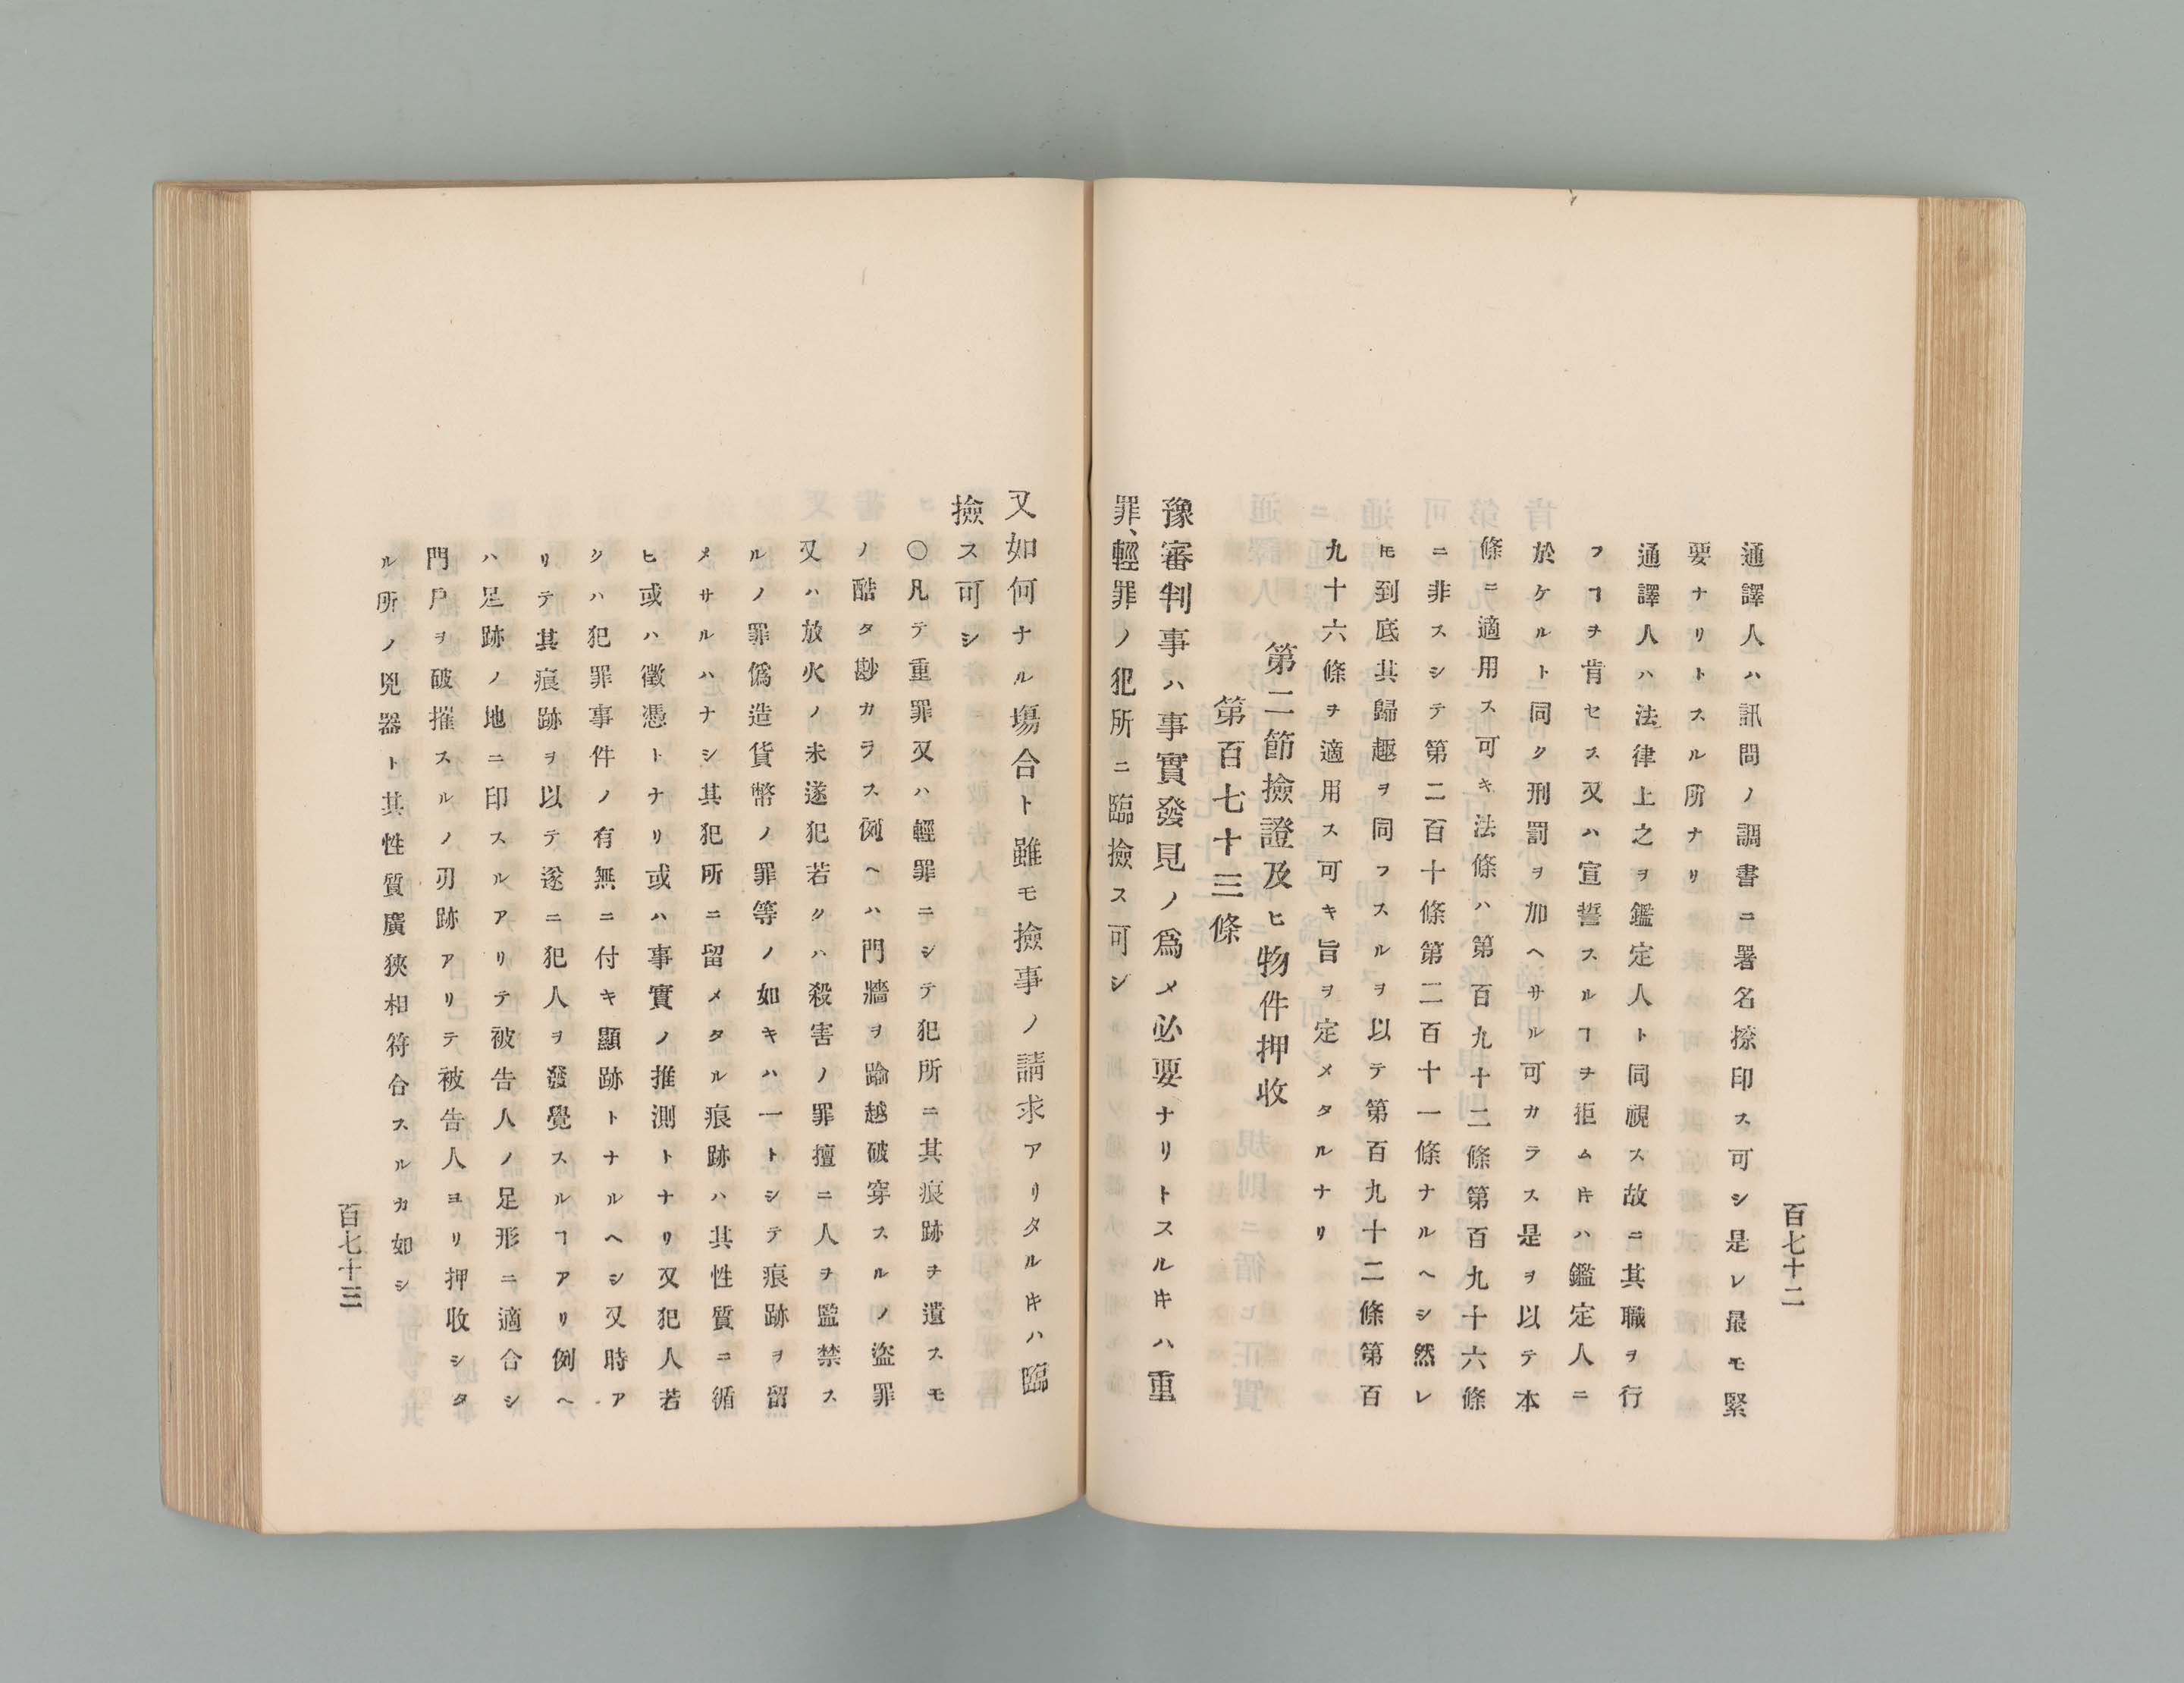 百七十二
通譯人ハ訊問ノ調書ニ署名捺印ス可シ是レ最モ緊
要ナリトスル所ナリ
通譯人ハ法律上之ヲ鑑定人ト同視ス故ニ其職ヲ行
フヿヲ肯セス又ハ宣誓スルヿヲ拒ムキハ鑑定人ニ
於ケルト同ク刑罰ヲ加ヘサル可カラス是ヲ以テ本
條ニ適用ス可キ法條ハ第百九十二條第百九十六條
ニ非スシテ第二百十條第二百十一條ナルヘシ然レ
𪜈到底其歸趣ヲ同フスルヲ以テ第百九十二條第百
九十六條ヲ適用ス可キ旨ヲ定メタルナリ
第二節撿證及ヒ物件押收
第百七十三條
豫審判事ハ事實發見ノ爲メ必要ナリトスルキハ重
罪、輕罪ノ犯所ニ臨撿ス可シ
又如何ナル塲合ト雖モ撿事ノ請求アリタルキハ臨
撿ス可シ
〇凡テ重罪又ハ輕罪ニシテ犯所ニ其痕跡ヲ遺スモ
ノ酷タ尠カラス例ヘハ門牆ヲ踰越破穿スルノ盜罪
又ハ放火ノ未遂犯若クハ殺害ノ罪擅ニ人ヲ監禁ス
ルノ罪僞造貨幣ノ罪等ノ如キハ一トシテ痕跡ヲ留
メサルハナシ其犯所ニ留メタル痕跡ハ其性質ニ循
ヒ或ハ徵憑トナリ或ハ事實ノ推測トナリ又犯人若
クハ犯罪事件ノ有無ニ付キ顯跡トナルヘシ又時ア
リテ其痕跡ヲ以テ遂ニ犯人ヲ發覺スルヿアリ例ヘ
ハ足跡ノ地ニ印スルアリテ被告人ノ足形ニ適合シ
門戶ヲ破摧スルノ刃跡アリテ被告人ヨリ押收シタ
ル所ノ兇器ト其性質廣狹相符合スルカ如シ
百七十三